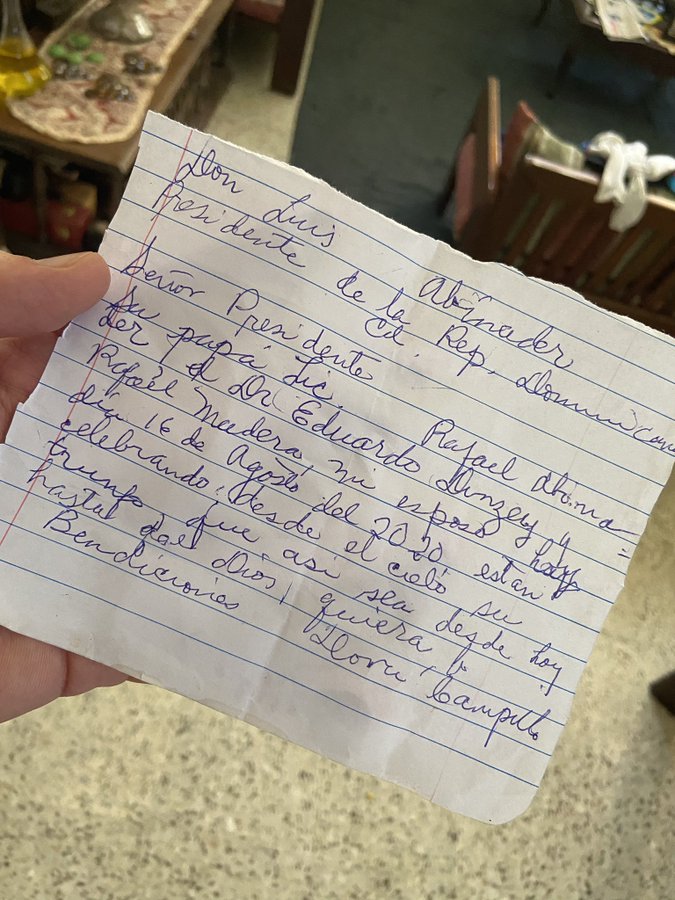 Don Luis Abinader
Presidente de la Rep. Dominicana
Cd.
Señor Presidente
Su papá Lic. Rafael Abina=
der y el Dr. Eduardo Dinzey y
Rafael Madera, mi esposo hoy
día 16 de Agosto del 2020, estan
celebrando, desde el cielo su
trunfo que asi sea desde hoy
hasta Dios quiera,
Bendiciones
Campillo